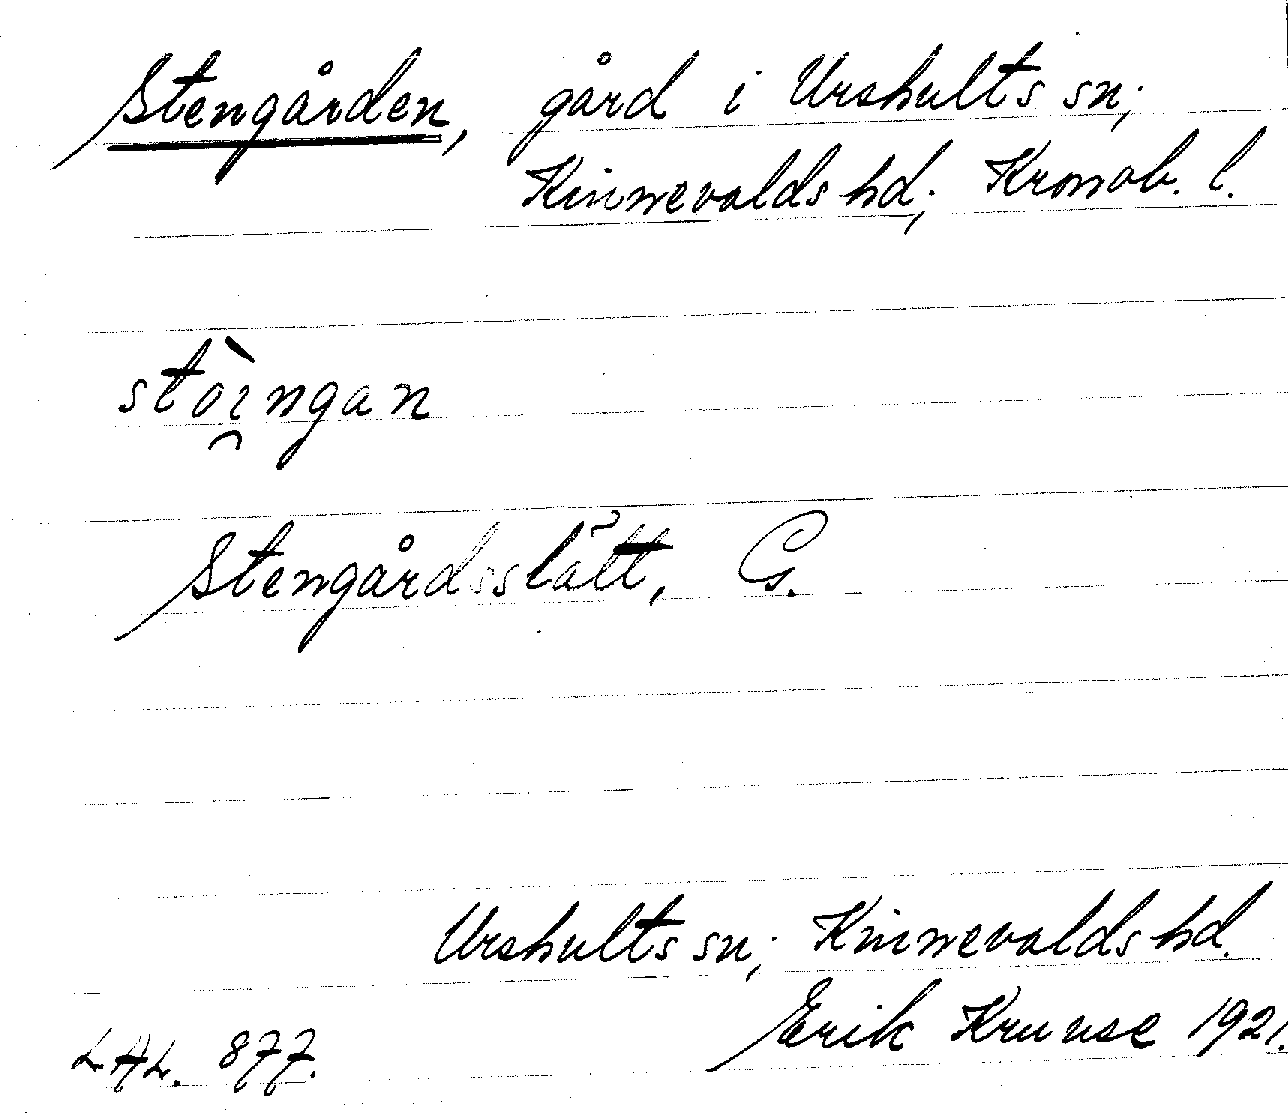 Stengården, gård i Urshults sn;
Kinnevalds hd; Kronob. l.
stòingan
Stengårdsslätt, G.
Urshults sn; Kinnevalds hd.
LAL. 877.
Erik Kruuse 1921.